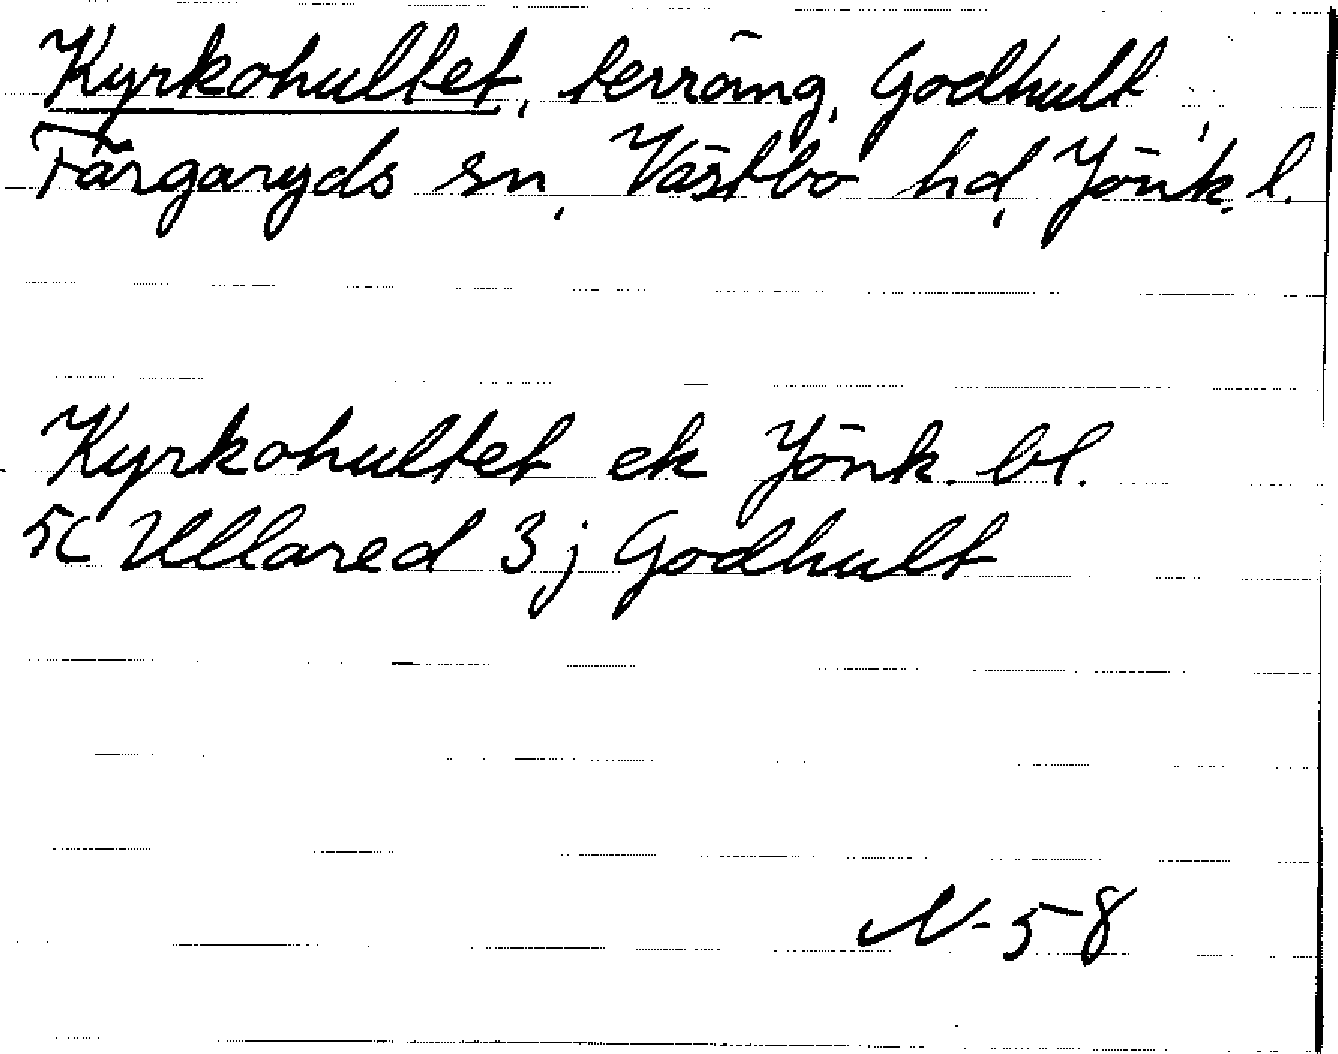 Kyrkohultet, terräng, Godhult,
Färgaryds sn, Västbo hd, Jönk. l.
Kyrkohultet ek Jönk. bl.
5C Ullared 3j Godhult
N-58